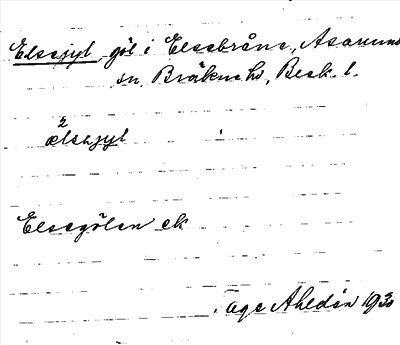 Elsegyl göl i Elsebråne, Asarums
sn. Bräkne hd, Blek. l.
2
ælsegyl
Elsegölen ek
Åge Ahldén 1930